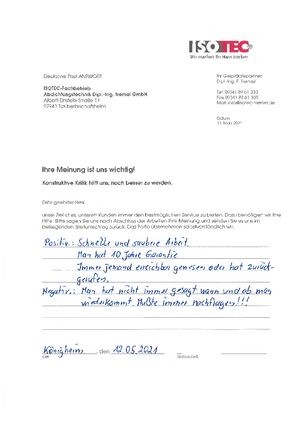 ISOTEC®
Wir machen Ihr Haus trocken
Deutsche Post ANTWORT
ISOTEC-Fachbetrieb
Abdichtungstechnik Dipl.-Ing. Tremel GmbH
97941 Tauberbischofsheim
Ihr Gesprächspartner
Dipl.-Ing. F. Tremel
Datum
Ihre Meinung ist uns wichtig!
Konstruktive Kritik hilft uns, noch besser zu werden.
unser Ziel ist es, unseren Kunden immer den bestmöglichen Service zu bieten. Dazu benötigen wir Ihre
Hilfe: Bitte sagen Sie uns nach Abschluss der Arbeiten Ihre Meinung und senden Sie es uns im
beiliegenden Briefumschlag zurück. Das Porto übernehmen selbstverständlich wir.
Positiv: Schnelle und saubere Arbeit.
Man hat 10 Jahre Garantie
Immer jemand erreichbar gewesen oder hat zurück-
gerufen.
Negativ: Man hat nicht immer gesagt wann und ob man
wiederkommt. Mußte immer nachfragen!!!
Königheim, den 12.05.2021
Ort
Unterschrift